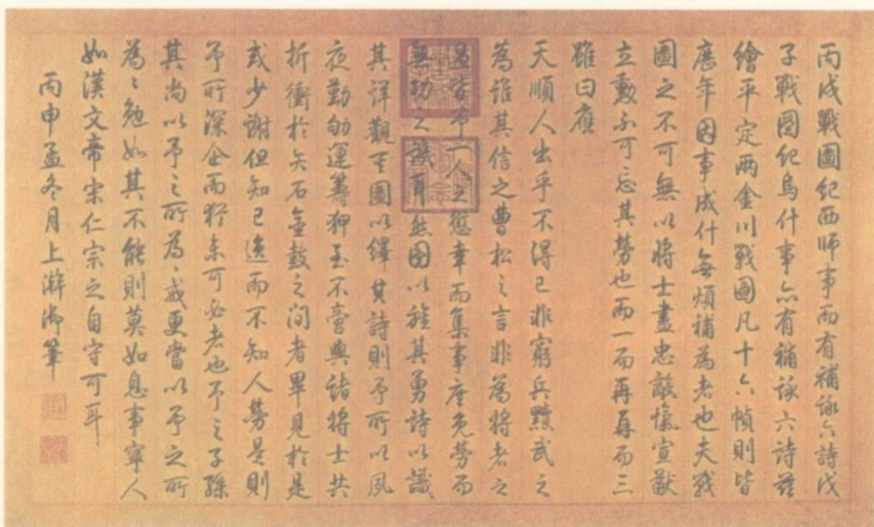 丙戌戰圖紀西師事而有補詠六詩戊
子戰圖紀烏什事亦有補詠六詩茲
繪平定兩金川戰圖凡十六幀則皆
應年因事成什無煩補為者也夫戰
圖之不可無以將士盡忠敵愾宣猷
立勳不可忘其勞也而一而再再而三
雖曰應
天順人出乎不得已非窮兵黷武之
為誰其信之曹松之言非為將者之
一人之愆幸而集事庶免勞而
無功之譏耳然圖以雖其勇詩以識
其詳觀是圖以繹其詩則予所以夙
夜勤劬運籌狎至不啻與諸將士共
折衝於矢石金鼓之間者畢見於是
或少謝但知已逸而不知人勞是則
予所深企而猶未可必者也予之子孫
其尚以予之所為為戒更當以予之所
為為勉如其不能則莫如息事寧人
如漢文帝宋仁宗之自守可耳
丙申孟冬月上澣御筆